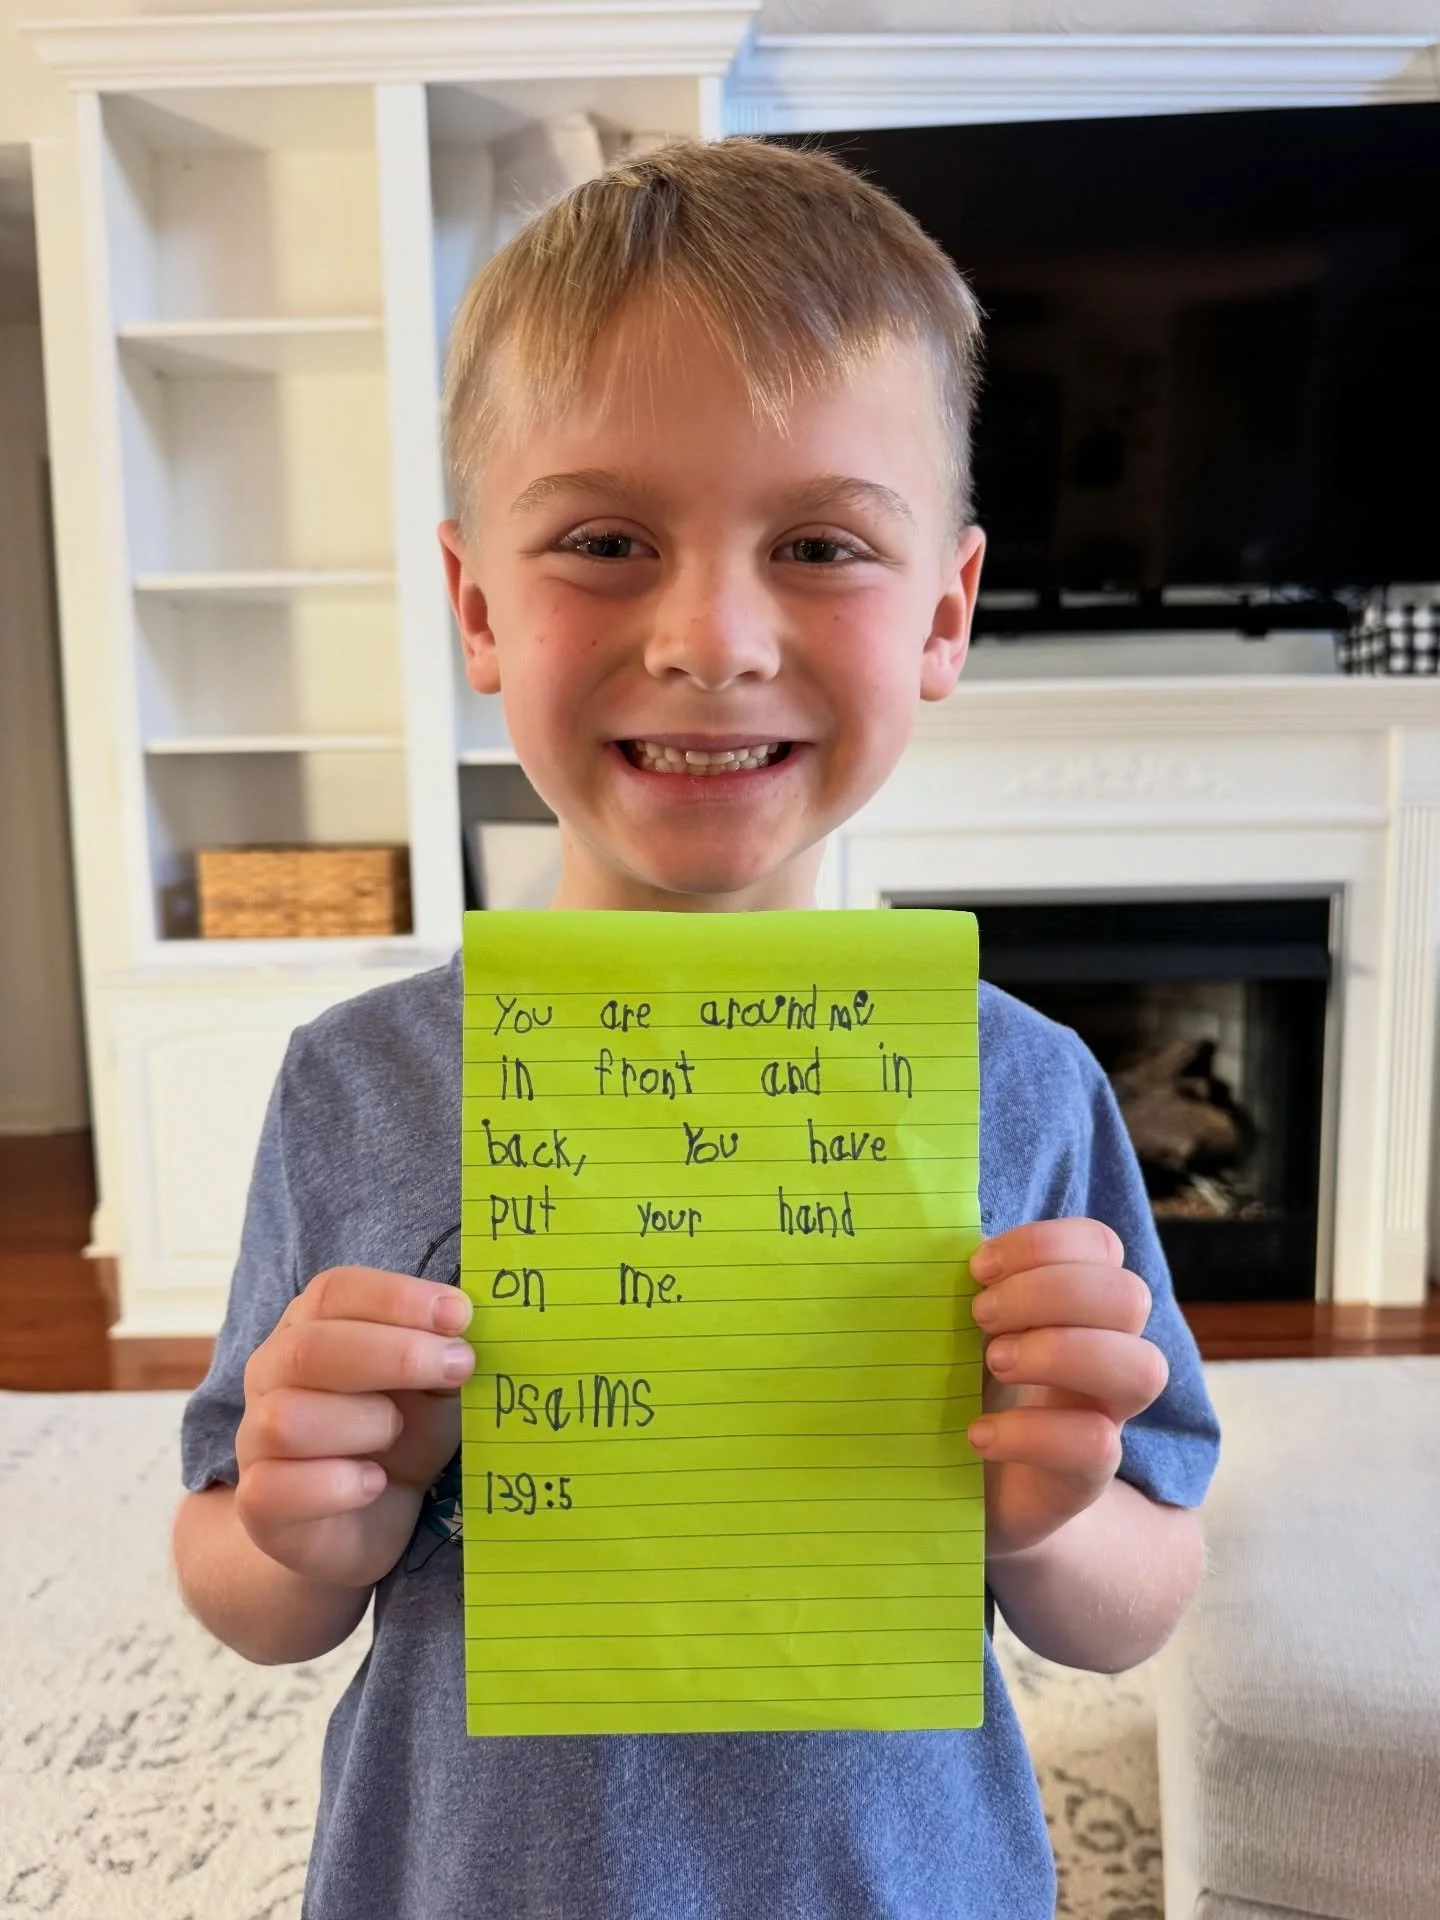 You are around me
in front and in
back, You have
put your hand
on me.
Psalms
139:5